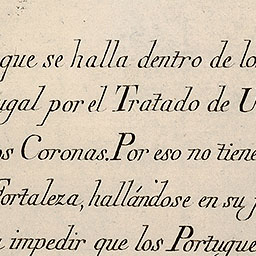 que se halla dentro de lo
ugal por el Tratado de U
os Coronas. Por eso no tiene
Fortaleza, hallándose en su
impedir que los Portugue